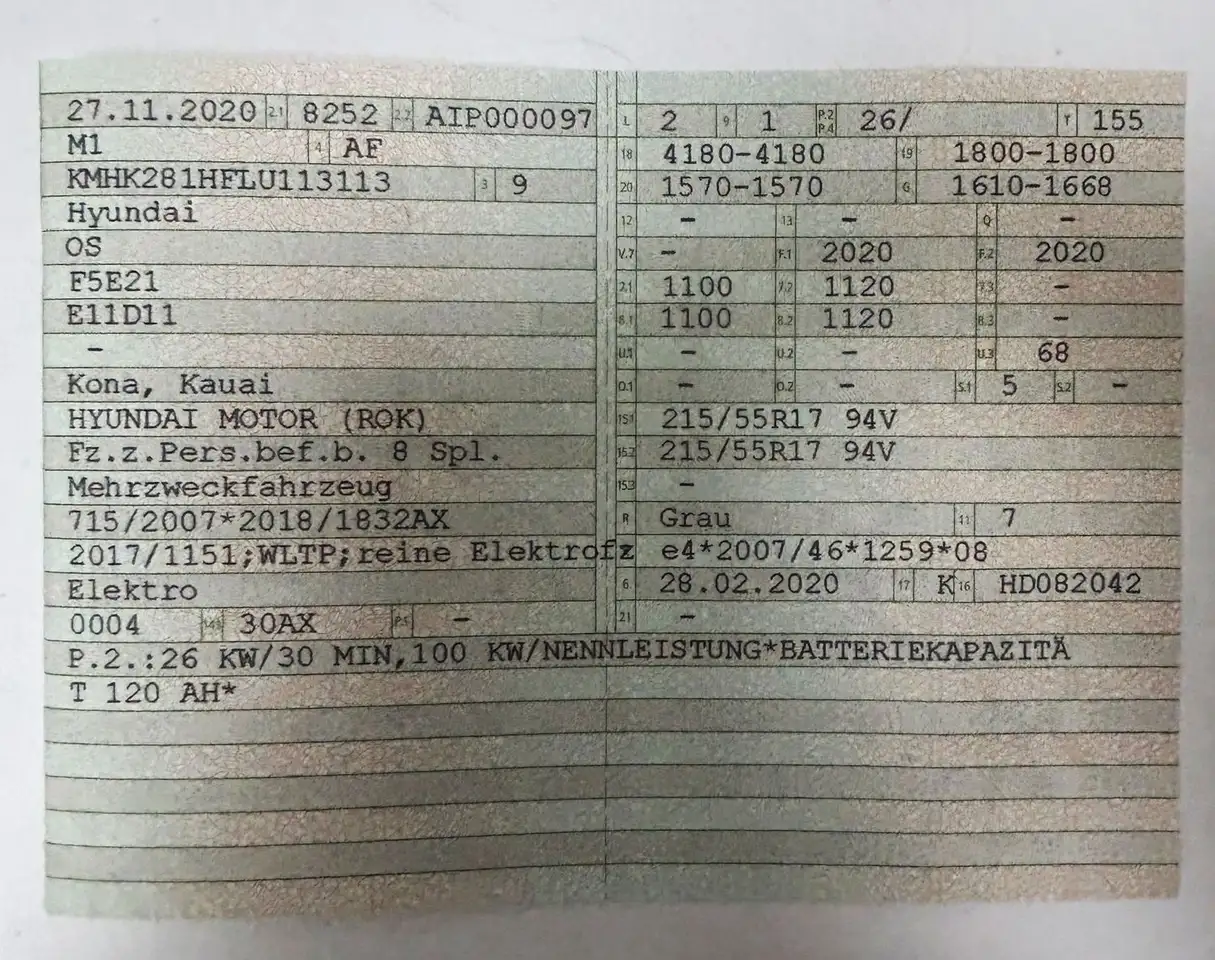 27.11.2020 2.1 8252 2.2 AIP000097
M1 4 AF
KMHK281HFLU113113 3 9
Hyundai
OS
F5E21
E11D11
–
Kona, Kauai
HYUNDAI MOTOR (ROK)
Fz.z.Pers.bef.b. 8 Spl.
Mehrzweckfahrzeug
715/2007*2018/1832AX
2017/1151;WLTP;reine Elektrofz
Elektro
0004 30AX P.1 –
L 2 9 1 P.2 P.4 26/ T 155
18 4180-4180 19 1800-1800
20 1570-1570 G 1610-1668
12 – 13 – Q –
V.7 – F.1 2020 F.2 2020
7.1 1100 7.2 1120 7.3 –
8.1 1100 8.2 1120 8.3 –
U.1 – U.2 – U.3 68
O.1 – O.2 – S.1 5 S.2 –
15.1 215/55R17 94V
15.2 215/55R17 94V
15.3 –
R Grau 11 7
e4*2007/46*1259*08
6 28.02.2020 17 K 16 HD082042
21 –
P.2.:26 KW/30 MIN,100 KW/NENNLEISTUNG*BATTERIEKAPAZITÄ
T 120 AH*